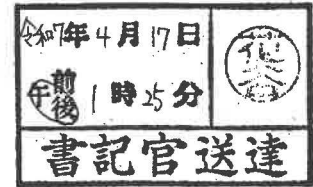 令和7年4月17日
午前後1時25分
書記官送達